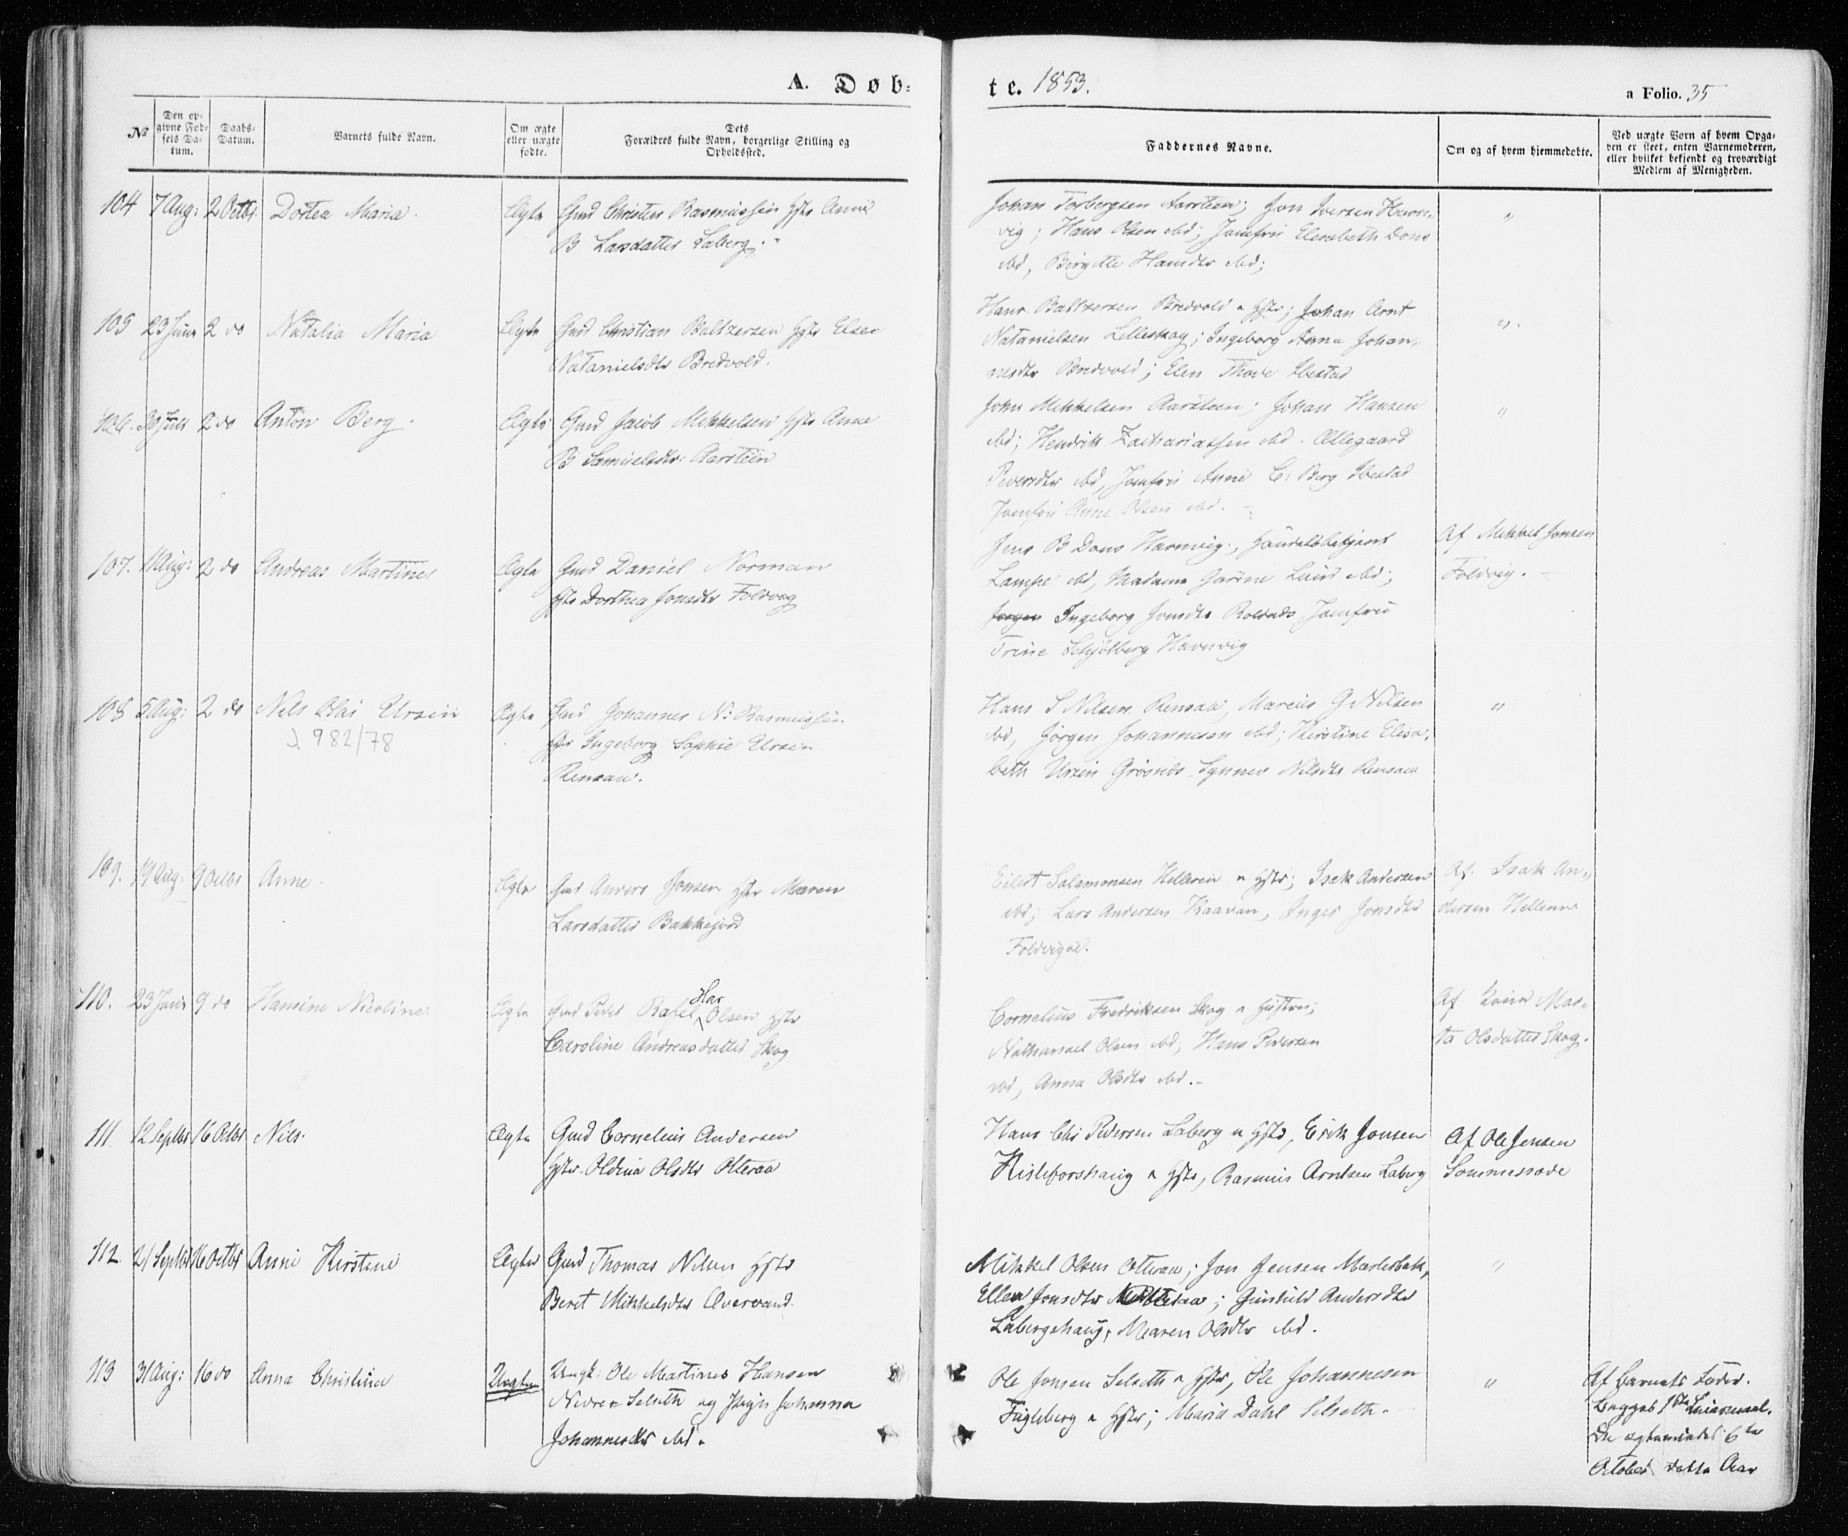 A. Døb-
te. 1853.
a Folio. 35
№
Den op-
givne Fød-
sels Da-
tum.
Daabs-
Datum.
Barnets fulde Navn.
Om ægte
eller uægte
fødte.
Dets
Forældres fulde Navn, borgerlige Stilling og
Opholdssted.
Faddernes Navne.
Om og af hvem hjemmedøbt.
Ved uægte Børn af hvem Opga-
ven er skeet, enten Barnemoderen,
eller hvilket bekjendt og troværdigt
Medlem af Menigheden.
104 7 Aug: 2 Octbr. Dortea Maria. Ægte Gmd Christen Rasmussen Hstr Anne
B Larsdatter Laberg.
Johan Torbergsen Aarsteen; Jon Iversen Havn-
vig; Hans Olsen ibd; Jomfru Elisabeth Dons
ibd, Birgitte Hansdtr ibd;
"
105 23 Juni 2 do Natalia Maria Ægte Gmd Christian Baltzersen Hstr Elsen
Natanielsdtr Bredvold.
Hans Baltzersen Bredvold & Hstr; Johan Arnt
Natanielsen Lilleskog; Ingeborg Anna Johan-
nesdtr Bredvold; Elen Thode Ibestad
"
106. 30 Juli 2 do Anton Berg. Ægte Gmd Jacob Mikkelsen Hstr Anne
B Samuelsdtr: Aarsteen
John Mikkelsen Aarsteen; Johan Hansen
ibd; Hendrik Zachariassen ibd. Ællegaard
Iversdtr ibd, Jomfru Anne C. Berg Ibestad
Jomfru Anne Olsen ibd.
"
107. 11 Aug: 2 do Andreas Martines Ægte Gmd Daniel Norman
Hstr Dorthea Jonsdtr Foldvig
Jens B Dons Havnvig, Handelsbetjent
Lampe ibd, Madame Lund ibd;
Ingeborg Jonsdtr Jomfru
Trine Schjølberg Havnvig
Af Mikkel Jonsen
Foldvig.
108 5 Aug: 2 do Nils Olai Ursin Ægte Gmd Johannes N: Rasmussen
J. 982/78
Hstr Ingeborg Sophie Ursin
Rensaa.
Hans S Nilsen Rensaa, Marcus G Nilsen
ibd, Jørgen Johannesen ibd; Kirstine Elisa-
beth Ursin Grøsnes Synnev Nilsdtr Rensaa
"
109. 19 Aug: 9 Octbr Anne. Ægte Gmd Anders Jonsen Hstr Maren
Larsdatter Bakkejord
Eilert Salamonsen Helleren & Hstr; Isak Andersen
ibd; Lars Andersen Kaavan, Inger Jonsdtr
Foldvigøe.
Af. Isak An-
dersen Helleren
110. 23 Juni 9 do Hansine Nicoline Ægte Gmd Peder Rafel Har Olsen Hstr
Caroline Andreasdatter Skog
Cornelius Fredriksen Skog & Hustru;
Nathanael Olsen ibd, Hans Pedersen
ibd, Anna Olsdtr ibd.
Af Kone Mar-
ta Olsdatter Skog.
111. 12 Septbr 16 Octbr Nils. Ægte Gmd Cornelius Andersen
Hstr. Oldina Olsdtr Otteraa
Hans Chr Pedersen Laberg & Hstr, Erik Jonsen
Kisleforshaug & Hstr, Rasmus Arntsen Laberg
Af Ole Jensen
Sommersæde
112. 21 Septbr 16 Octbr Anne Kirstine Ægte Gmd Thomas Nilsen Hstr
Beret Mikkelsdtr Overvand.
Mikkel Olsen Otteraa; Jon Jensen Maslesbak,
Ellen Jonsdtr Otteraa; Gunhild Andersdtr
Labergshaug, Maren Olsdtr ibd.
"
113 31 Aug: 16 do Anna Christina Uægte Ungk: Ole Martines Hansen
Nedre Selseth og Pige Johanna
Johannesdtr ibd.
Ole Jonsen Selseth & Hstr, Ole Johannesen
Fugleberg & Hstr; Maria Dahl Selseth.
"
Af Barnets Fader.
Begges 1ste Leiermaal.
De ægteviedes 6te
October dette Aar